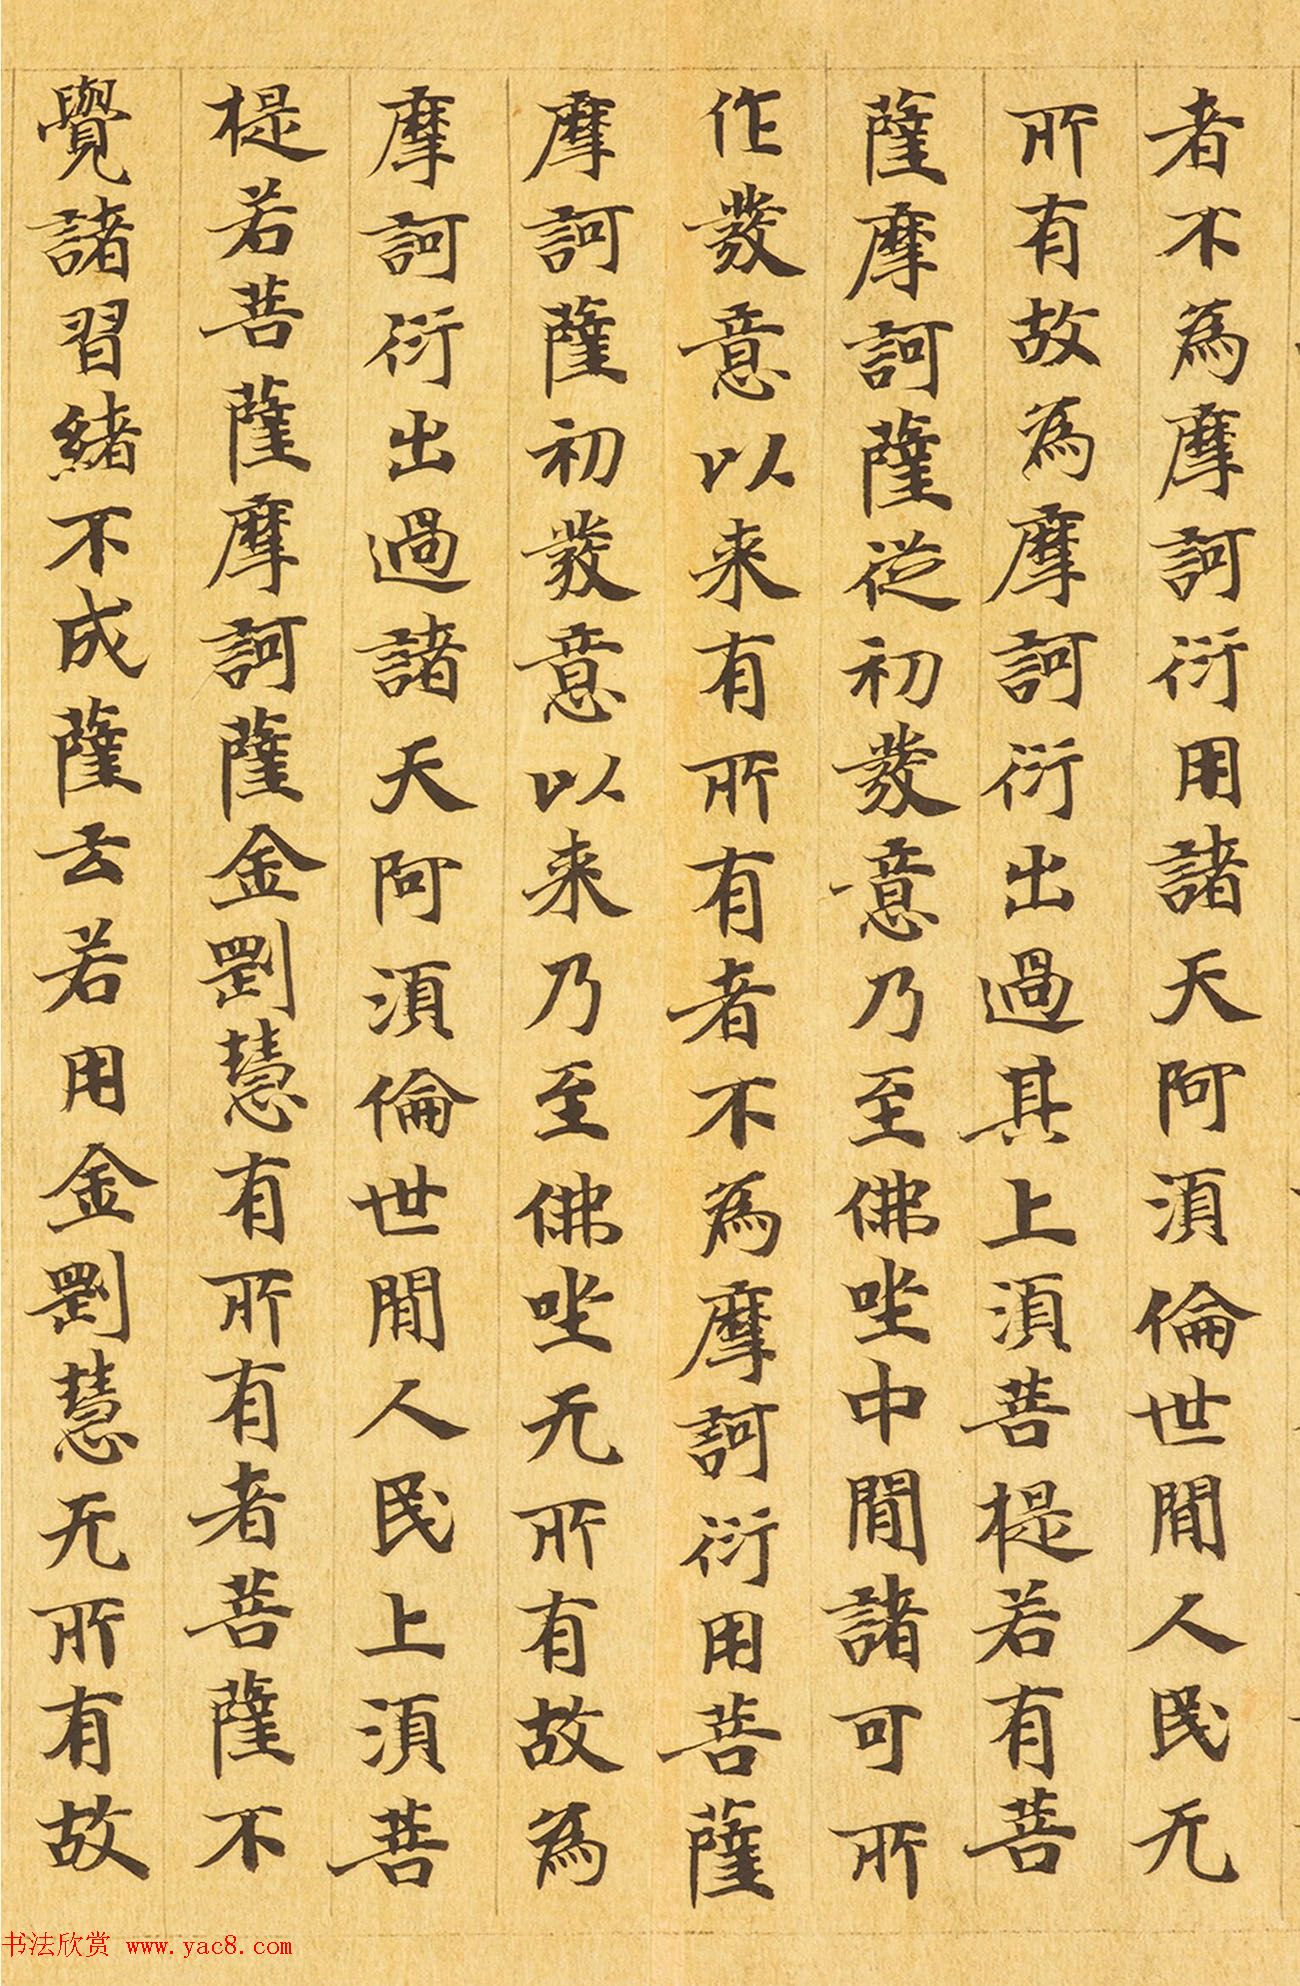 者不為摩訶衍用諸天阿湏倫世間人民无
所有故為摩訶衍出過其上湏菩提若有菩
薩摩訶薩從初發意乃至佛坐中間諸可所
作發意以来有所有者不為摩訶衍用菩薩
摩訶薩初發意以来乃至佛坐无所有故為
摩訶衍出過諸天阿湏倫世間人民上湏菩
提若菩薩摩訶薩金剛慧有所有者菩薩不
覺諸習緒不成薩云若用金剛慧无所有故
书法欣赏 www.yac8.com